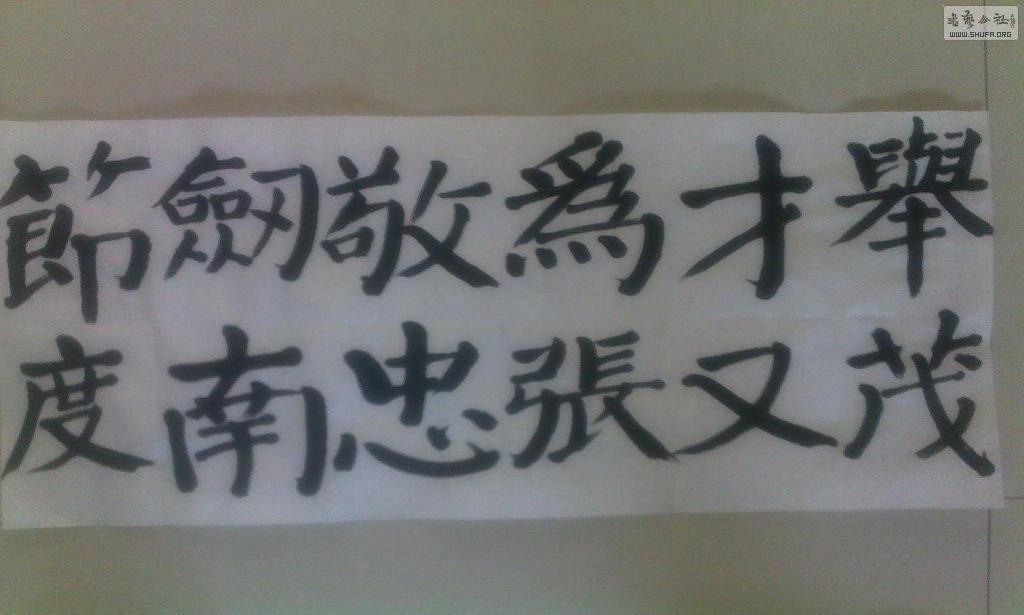 舉茂
才又
爲張
敬忠
劒南
節度
書藝公社
WWW.SHUFA.ORG